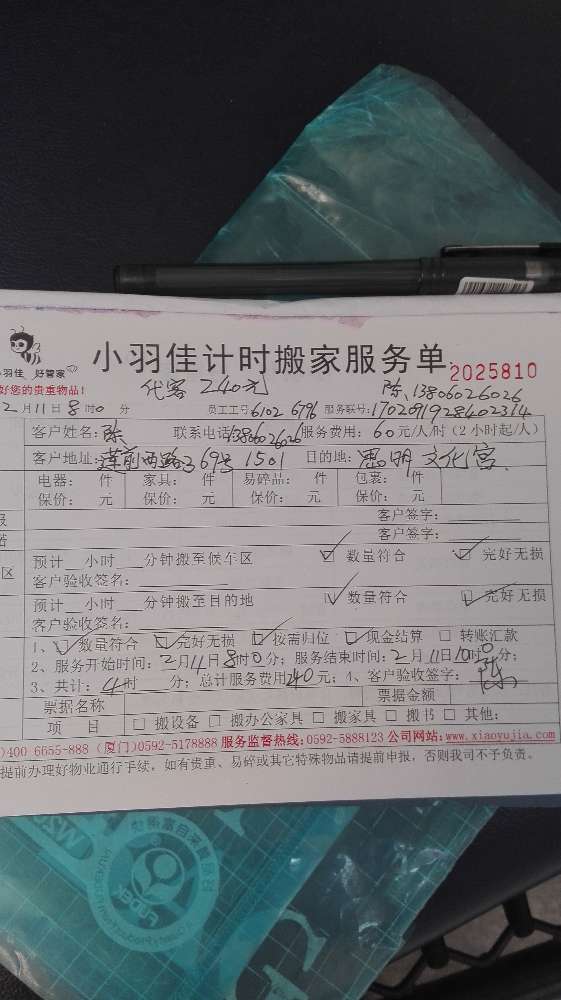 小羽佳 好管家
小羽佳计时搬家服务单 2025810
好您的贵重物品!
代客 240元 陈,13806026026
2月11日8时0分 员工工号6102 6796 服务联号:1702091928402314
客户姓名:陈 联系电话13806026026服务费用:60元/人/时(2小时起/人)
客户地址:莲前西路369号1501 目的地:思明文化宫
电器: 件 家具: 件 易碎品: 件 包裹: 件
保价: 元 保价: 元 保价: 元 保价: 元
客户签字:
客户签字:
预计__小时___分钟搬至候车区 ☑ 数量符合 ☑ 完好无损
客户验收签名:
预计__小时___分钟搬至目的地 ☑ 数量符合 ☑ 完好无损
客户验收签名:
1、☑数量符合 ☑完好无损 ☑按需归位 ☑现金结算 ☐转账汇款
2、服务开始时间:2月11日8时0分;服务结束时间:2月11日10时0分;
3、共计:4时___分;总计服务费用240元;4、客户验收签字:陈
票据名称 票据金额
项 目 ☐搬设备 ☐搬办公家具 ☐搬家具 ☐搬书 ☐其他:
)400 6655-888 (厦门)0592-5178888 服务监督热线:0592-5888123 公司网站:www.xiaoyujia.com
提前办理好物业通行手续,如有贵重、易碎或其它特殊物品请提前申报,否则我司不予负责。